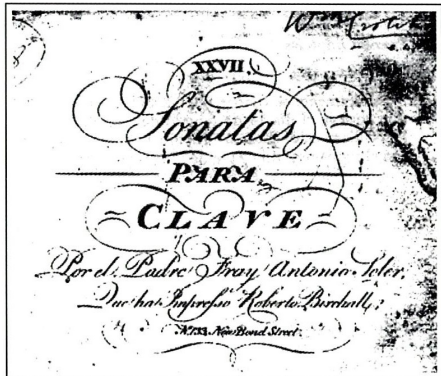 XXVII
Sonatas
PARA
CLAVE
Por el Padre Fray Antonio Soler,
Que ha Impresso Roberto Birchall,
New Bond Street.